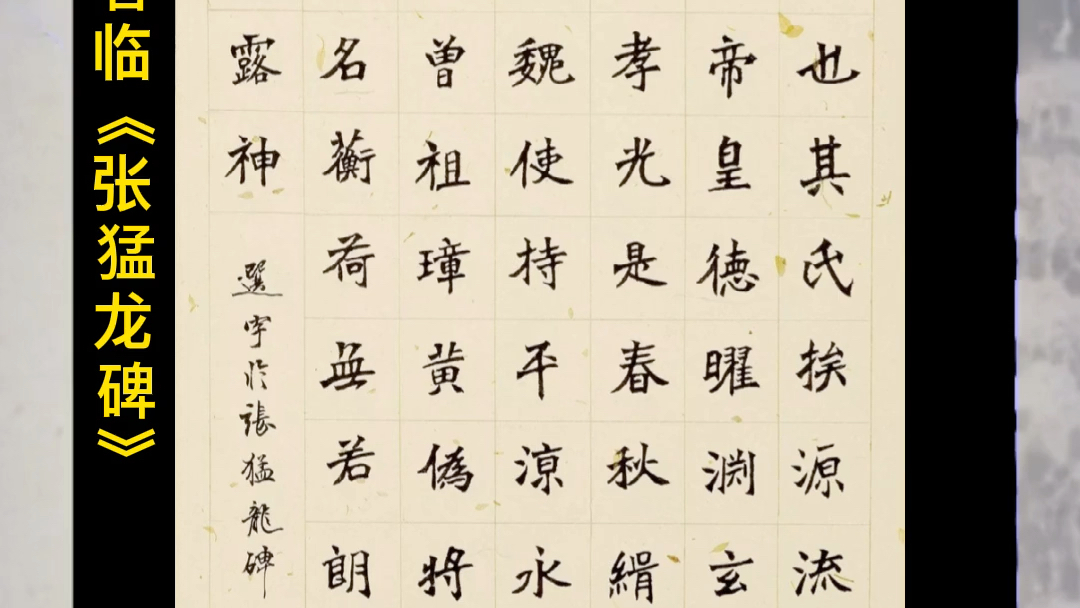 也其氏族源流
帝皇德曜渊玄
孝光是春秋緝
魏使持平涼永
曾祖璋黄偽将
名蘅荷無若朗
露神
選字於張猛龍碑
临《张猛龙碑》